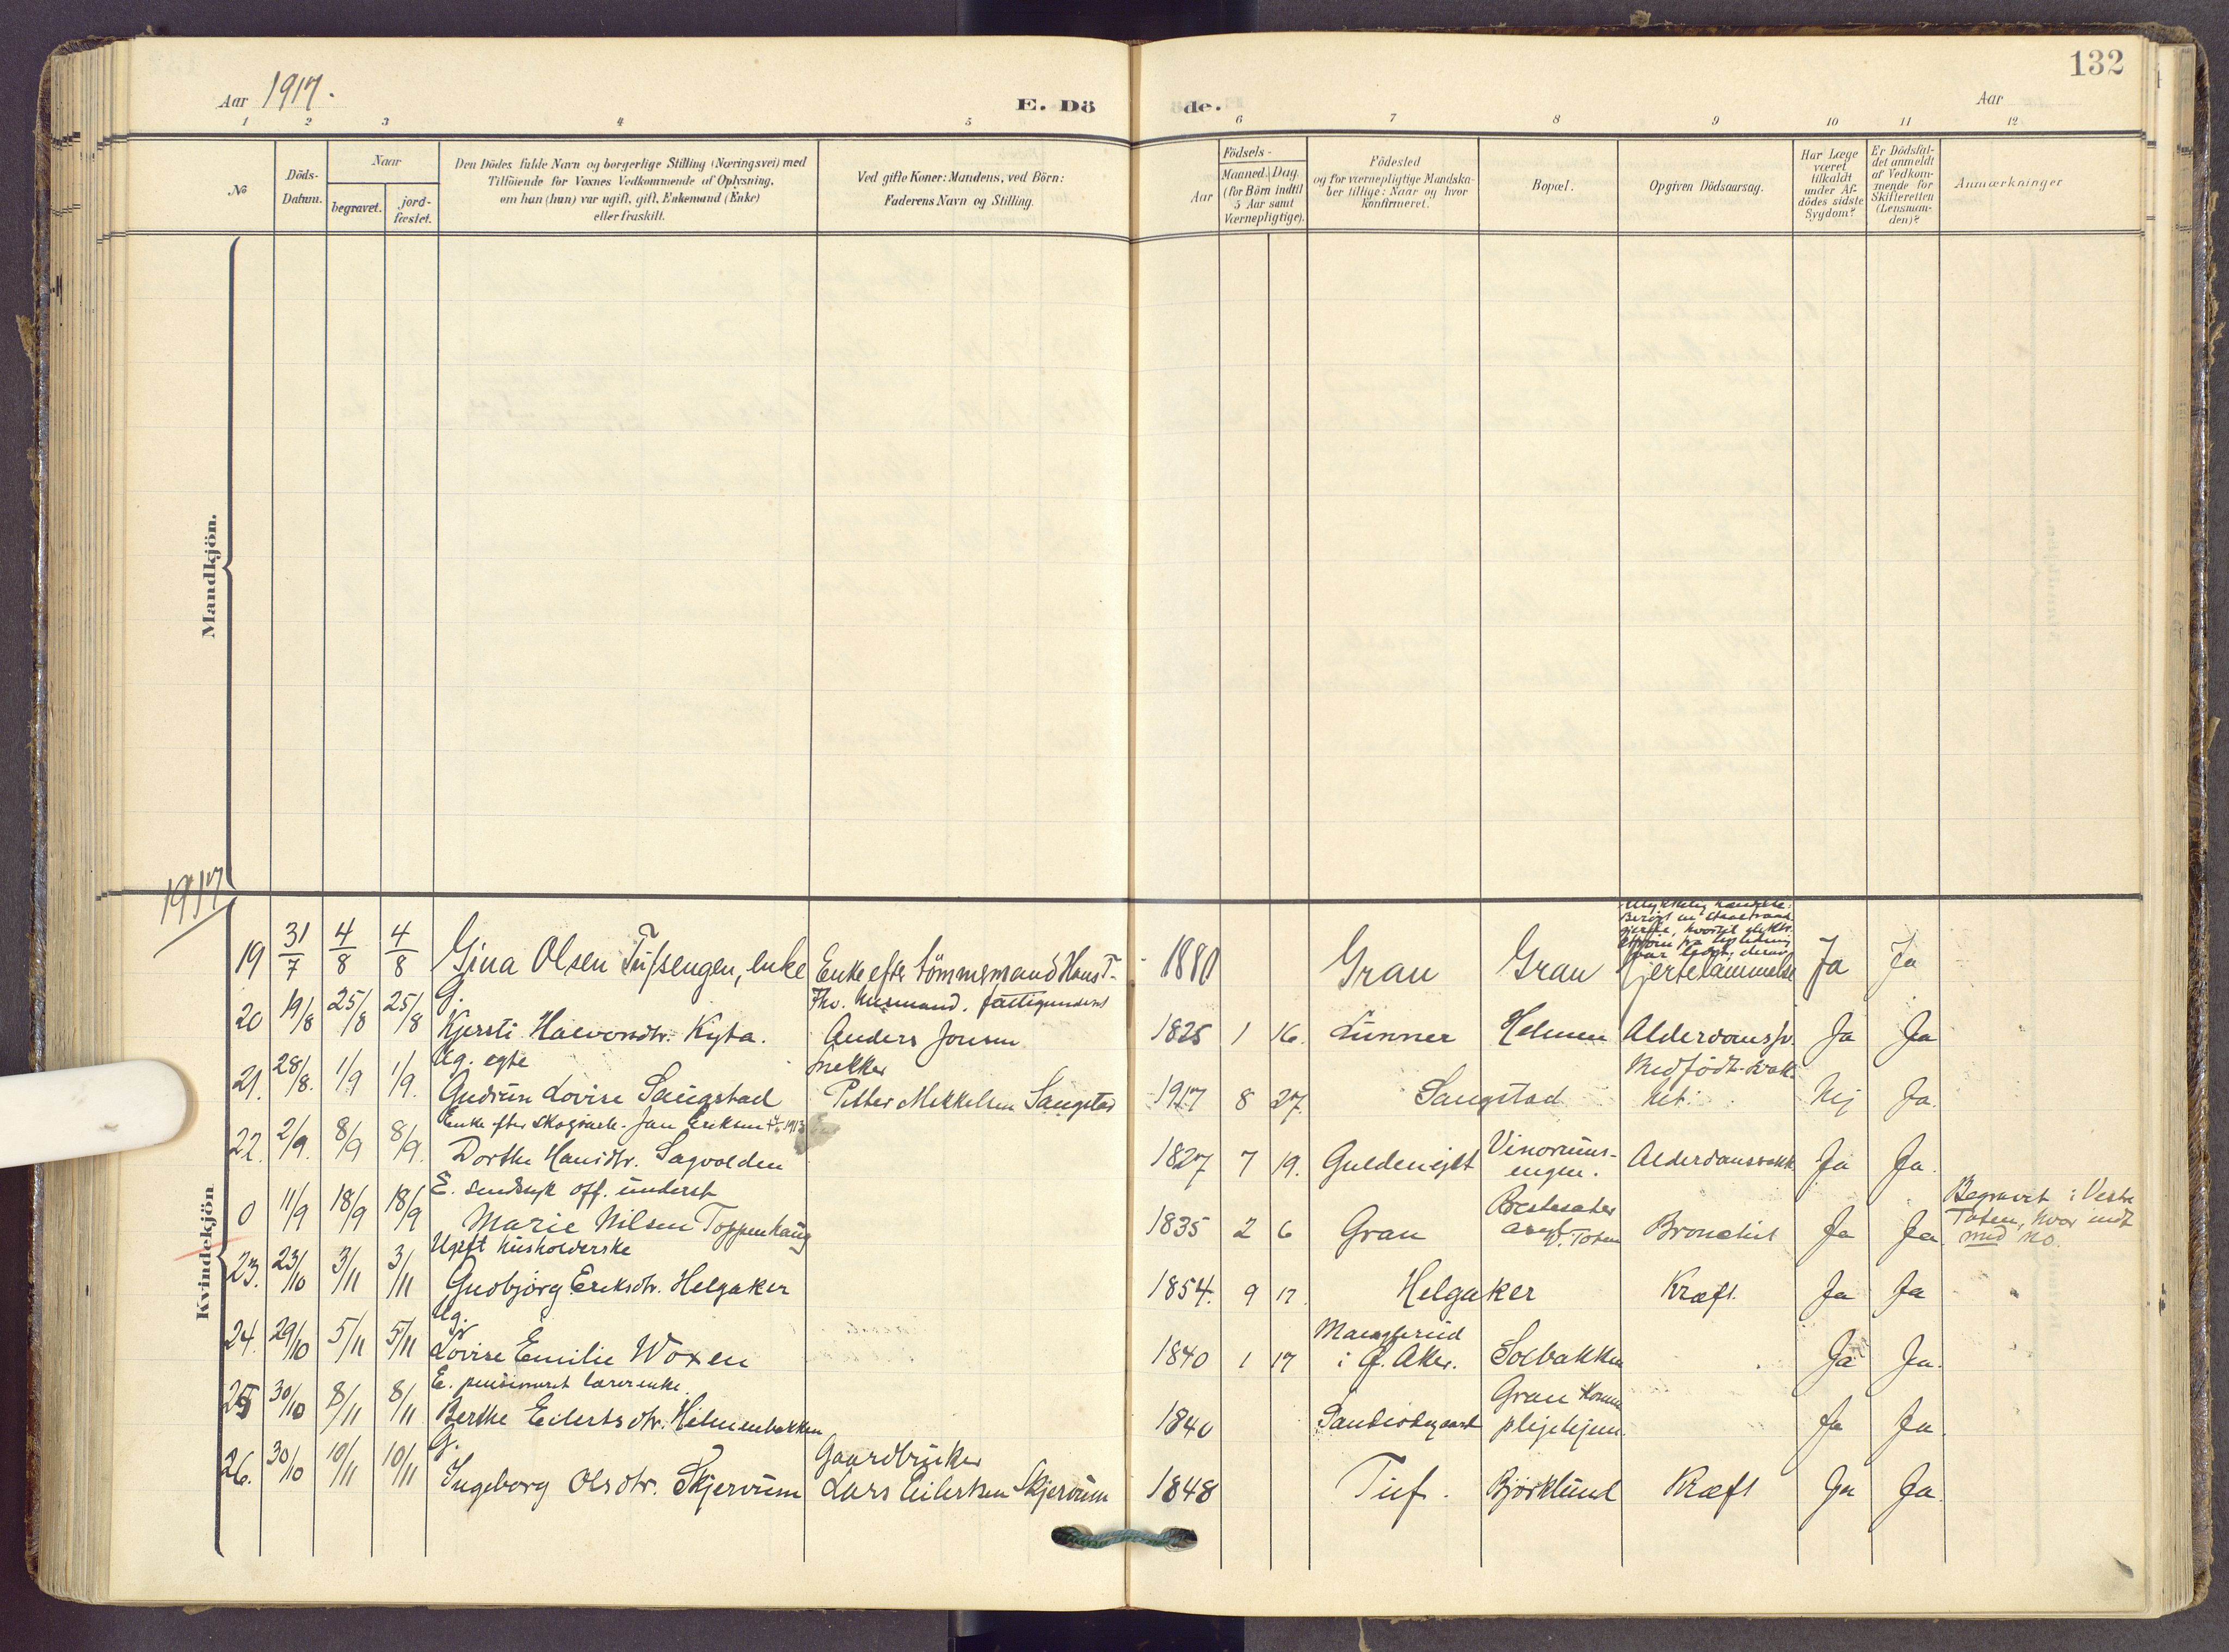 132
Aar 1917.
E. Dö de.
Aar
1 2 3 4 5 6 7 8 9 10 11 12
No
Döds-
Datum.
Naar
begravet.
jord-
fæstet.
Den Dödes fulde Navn og borgerlige Stilling (Næringsvei) med
Tilföiende for Voxnes Vedkommende af Oplysning,
om han (hun) var ugift, gift, Enkemand (Enke)
eller fraskilt.
Ved gifte Koner: Mandens, ved Börn:
Faderens Navn og Stilling.
Födsels-
Aar
Maaned. Dag.
(for Börn indtil
5 Aar samt
Værnepligtige).
Födested
og for værnepligtige Mandska-
ber tillige: Naar og hvor
konfirmeret.
Bopæl.
Opgiven Dödsaarsag.
Har Læge
været
tilkaldt
under Af-
dödes sidste
Sygdom?
Er Dödsfal-
det anmeldt
af Vedkom-
mende for
Skifteretten
(Lensman-
den)?
Anmærkninger
Mandkjön.
1917
Kvindekjön
19 31/7 4/8 4/8 Gina Olsen Tufsengen, enke Enke efter tömmermand Hans T. 1881 Gran Gran hjertelammelse Ja Ja
20 19/8 25/8 25/8 G. Fhv. husmand,
Kjersti Halvorsdtr. Kyta. Anders Jonsen 1825 1 16. Lunner Helmen Ja Ja
21. 28/8. 1/9 1/9. Ug. egte Snekker Medfödt svak-
Gudrun Lovise Saugstad Petter Mikkelsen Saugstad 1917 8 27. Saugstad het. Nej Ja.
22. 2/9. 8/9 8/9. Enke efter Jan Eriksen
Dorthe Hansdtr. Sagvolden 1827 7 19. Vinorums-
engen. Ja Ja.
0 11/9 18/9 18/9 E. off. underst.
Marie Nilsen Toppenhaug 1835 2 6 Gran V. Toten Bronchit Ja Ja. Begravet i Vestre
Toten, hvor indt
med No.
23. 23/10 3/11 3/11 Ugift husholderske
Gudbjörg Eriksdtr. Helgaker 1854. 9 17. Helgaker Kræft. Ja Ja
24. 29/10 5/11 5/11 Ug.
Lovise Emilie Woxen 1840 1 17 Manglerud
i Ö. Aker. Solbakken Ja Ja.
25 30/10 8/11 8/11 E. pensioneret lærerenke.
Berthe Eilertsdtr. Helmenbakken 1840 Gran Komm
plejehjem. Ja Ja.
26. 30/10 10/11 10/11 G. Gaardbruker
Ingeborg Olsdtr. Skjervum Lars Eilertsen Skjervum 1848 Tuf. Björklund Kræft Ja Ja.